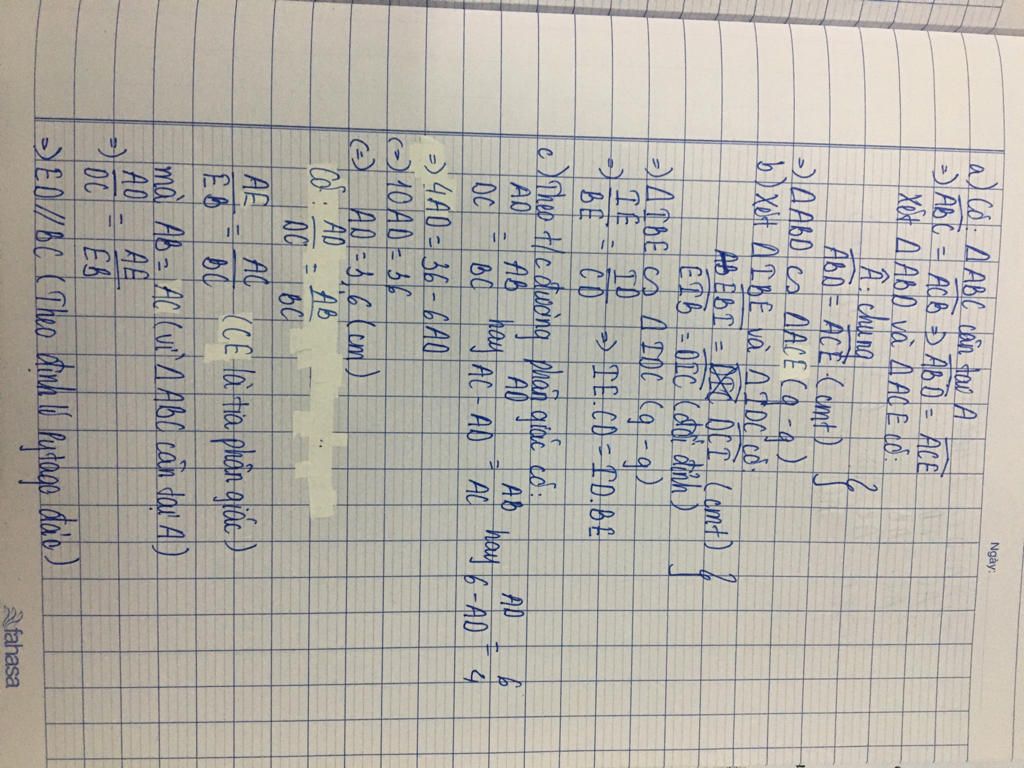 Ngày:
a) Có: ΔABC cân tại A
=) ABC = ACB => ABD = ACE
Xét ΔABD và ΔACE có:
Â: chung
ABD = ACE (cmt) }
=) ΔABD ∽ ΔACE (g-g)
b) Xét ΔIBE và ΔIDC có:
EBI = DCI (cmt) }
EIB = DIC (đối đỉnh)
=) ΔIBE ∽ ΔIDC (g-g)
=) IE/BE = ID/CD => IE.CD = ID.BE
c) Theo t/c đường phân giác có:
AD/DC = AB/BC hay AD/AC-AD = AB/AC hay AD/6-AD = 6/4
=) 4AD = 36-6AD
(=) 10AD = 36
(=) AD = 3,6 (cm)
Có: AD/DC = AB/BC
AE/EB = AC/BC (CE là tia phân giác)
mà AB = AC (vì ΔABC cân tại A)
=) AD/DC = AE/EB
=) ED//BC (Theo định lí pytago đảo)
fahasa